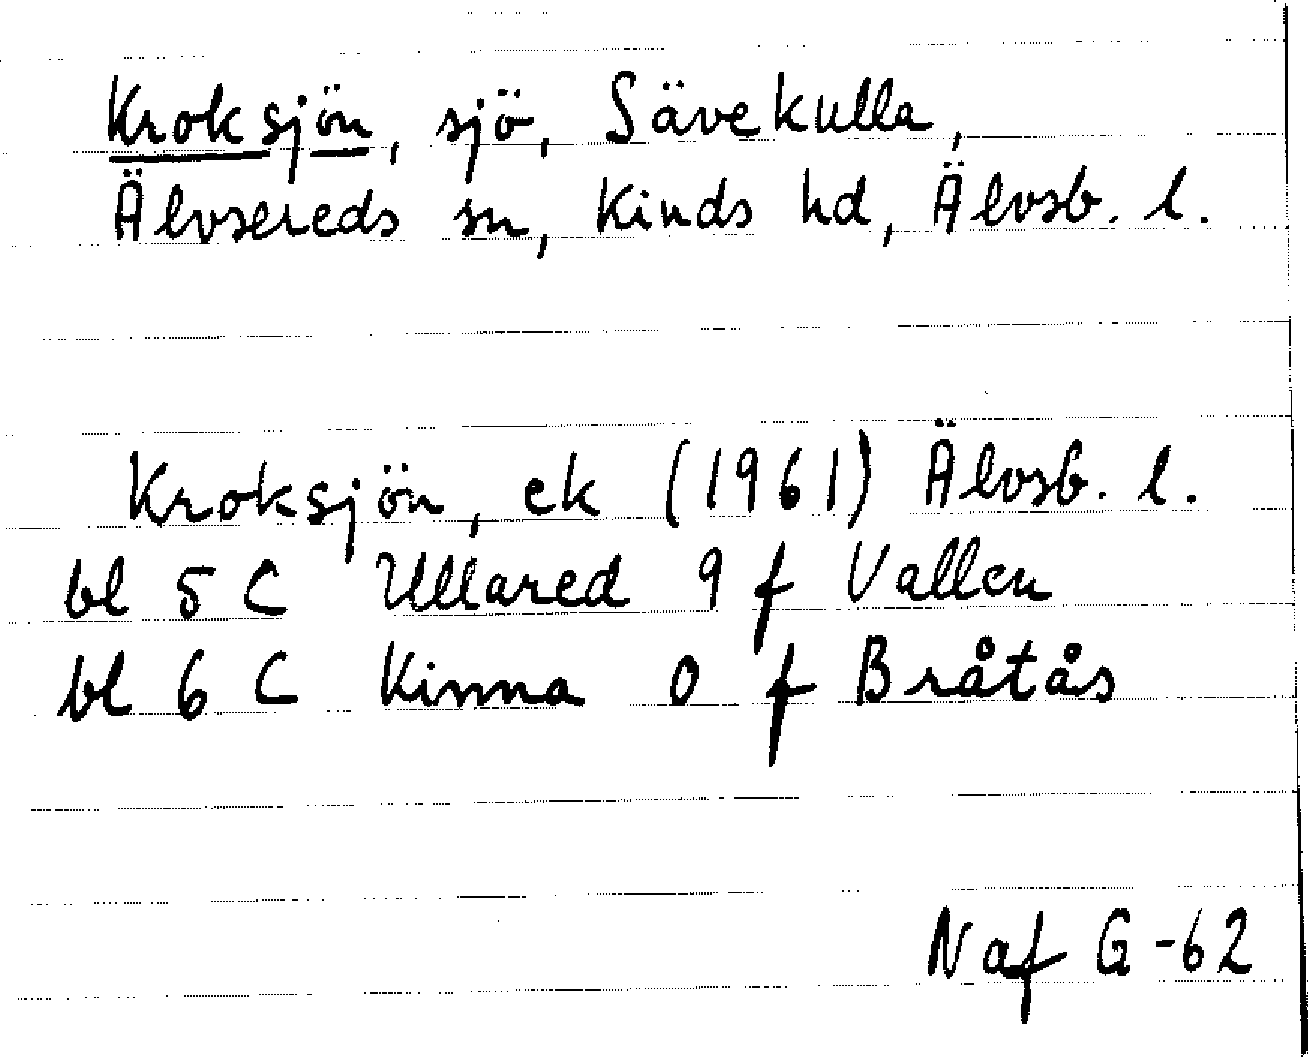 Kroksjön, sjö, Sävekulla,
Älvsereds sn, Kinds hd, Älvsb. l.
Kroksjön, ek (1961) Älvsb. l.
bl 5 C Ullared 9 f Vallen
bl 6 C Kinna 0 f Bråtås
Naf G-62